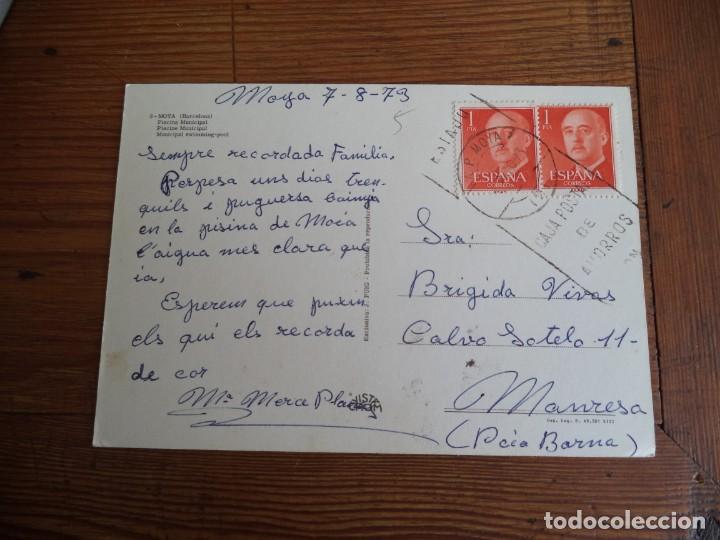 Moya 7-8-73
3-MOYA (Barcelona)
Piscina Municipal
Piscine Municipal
Municipal swimming-pool
Sempre recordada Familia.
Perpesa uns dias tren-
quils i puguersa bainja
en la pisina de Moia
l'aigua mes clara que
ia.
Esperem que puxin
els qui els recorda
de cor
Mª Merce
Exclusiva: J. PUIG - Prohibida la reproducción
1
PTA
ESPAÑA
CORREOS
1
PTA
ESPAÑA
CORREOS
MOYA
CAJA POSTAL
DE
AHORROS
Sra:
Brigida Vivas
Calvo Sotelo 11-
Manresa
(Pcia Barna)
VISTA
todocoleccion.net